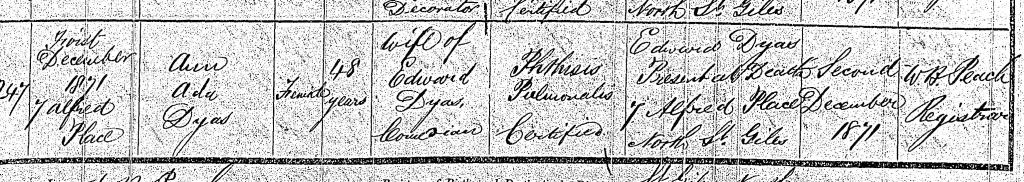 Decorator Certified North St. Giles
247
First
December
1871
7 Alfred
Place
Ann
Ada
Dyas
Female
48
years
Wife of
Edward
Dyas,
Comedian
Phthisis
Pulmonalis
Certified
Edward Dyas
Present at Death
7 Alfred Place
North St. Giles
Second
December
1871
W B Peach
Registrar